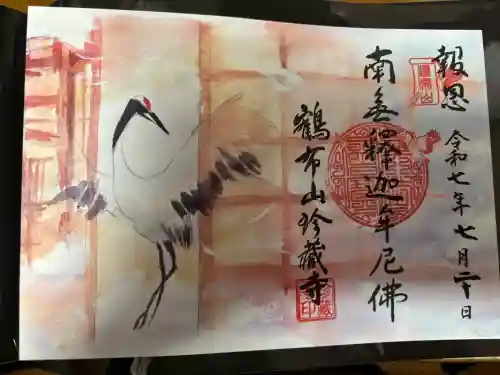 報恩
令和七年七月二十日
南無釋迦牟尼佛
鶴布山珍蔵寺